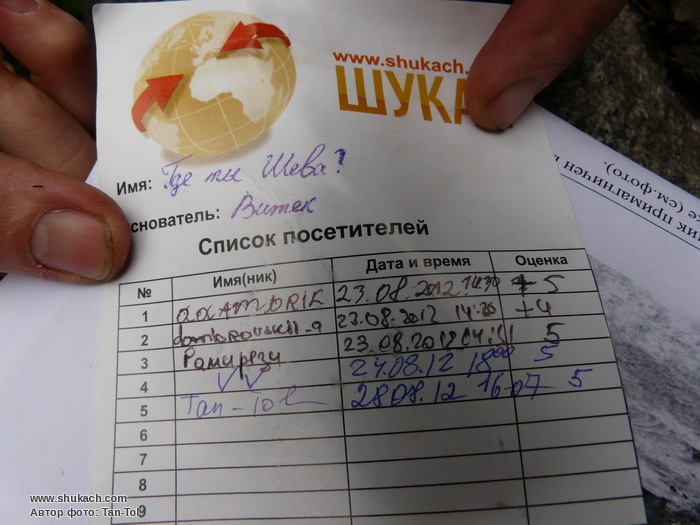 www.shukach.
ШУКА
Имя: Где ты Шева?
снователь: Витек
Список посетителей
№ Имя(ник) Дата и время Оценка
1 23.08.2012 14:30 5
2 dombrovskii-a 23.08.2012 14:30 +4
3 Рамирезы 23.08.2012 14:31 5
4 VV 24.08.12 18:00 5
5 Tan-Tol 28.08.12 16-07 5
6
7
8
9
ник примагничен
(см.фото).
www.shukach.com
Автор фото: Tan-Tol